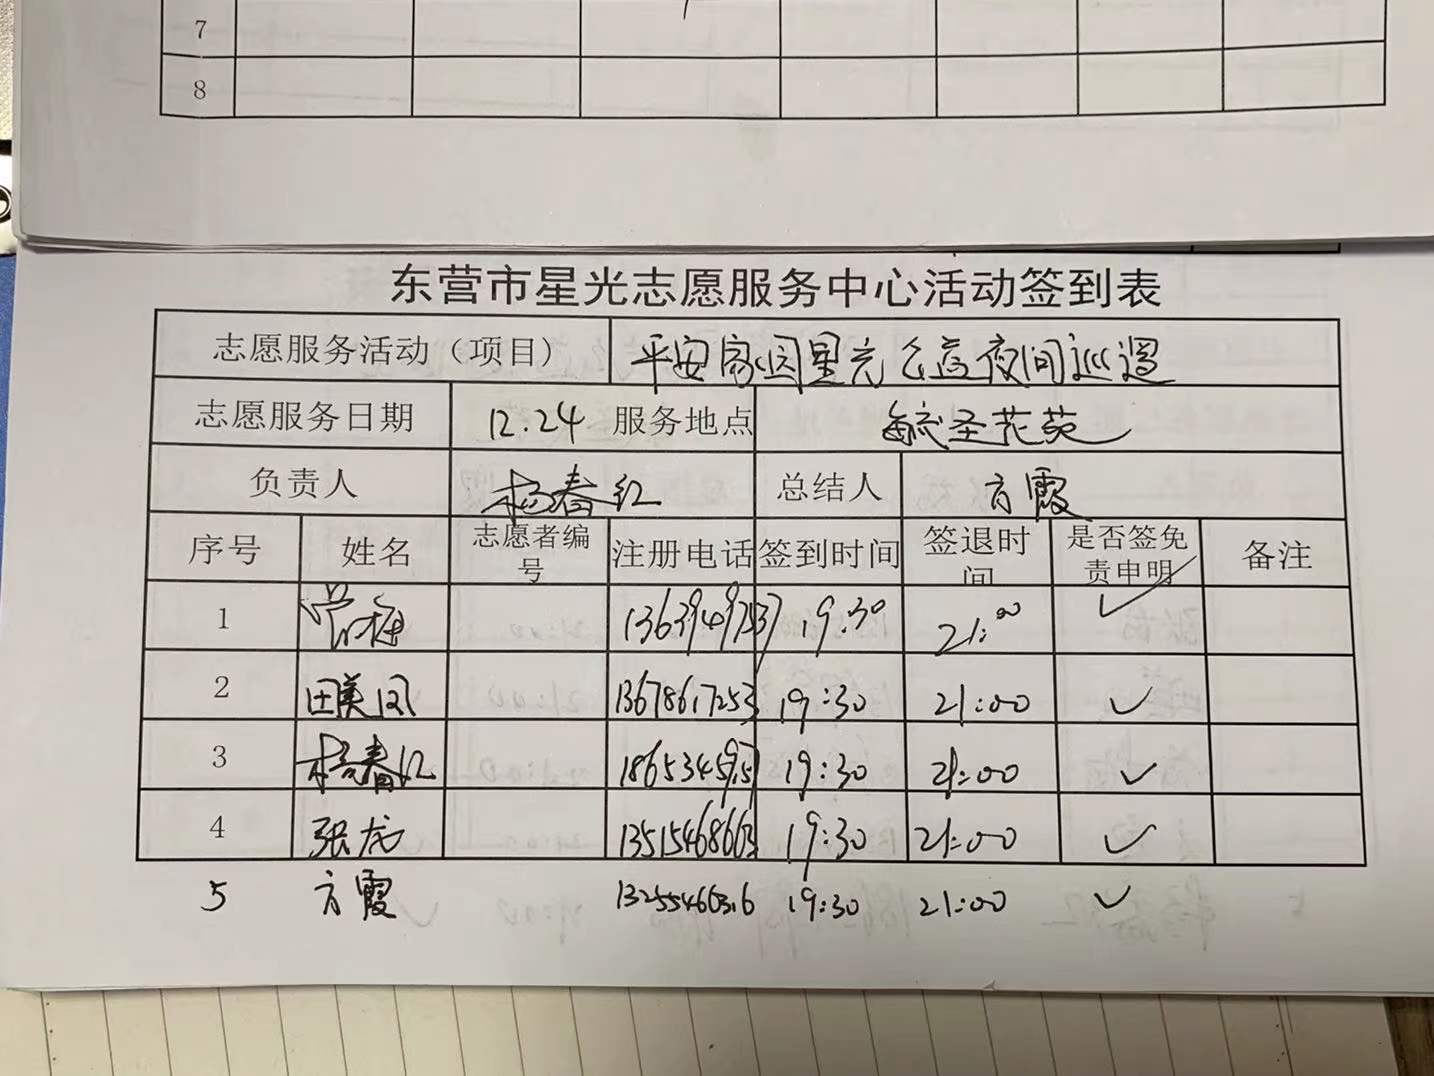 7
8
东营市星光志愿服务中心活动签到表
志愿服务活动（项目） 平安家园星光公益夜间巡逻
志愿服务日期 12.24 服务地点 毓圣花苑
负责人 杨春红 总结人 方霞
序号 姓名 志愿者编号 注册电话 签到时间 签退时间 是否签免责申明 备注
1 19:30 21:00 ✓
2 田美凤 13678617253 19:30 21:00 ✓
3 杨春红 19:30 21:00 ✓
4 张龙 13515468663 19:30 21:00 ✓
5 方霞 13255466316 19:30 21:00 ✓